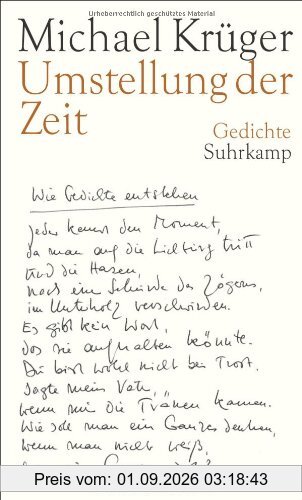 Urheberrechtlich geschütztes Material
Michael Krüger
Umstellung der
Zeit
Gedichte
Suhrkamp
Wie Gedichte entstehen
Jeder kennt den Moment,
da man auf die Lichtung tritt
und die Hasen,
nach einer Sekunde des Zögerns,
im Unterholz verschwinden.
Es gibt kein Wort,
das sie aufhalten könnte.
Du bist wohl nicht bei Trost,
sagte mein Vater,
wenn mir die Tränen kamen.
Wie soll man ein Ganzes denken,
wenn man nicht weiß,
Preis vom: 01.09.2026 03:18:43